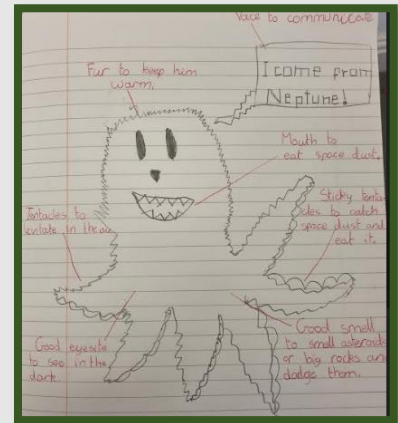 Voice to communicate
I come from
Neptune!
Fur to keep him
warm.
Mouth to
eat space dust.
Sticky tenta
cles to catch
space dust and
eat it.
Tentacles to
in the air
Good eyesite
to see in the
dark.
Good smell
to smell asteroids
or big rocks and
dodge them.